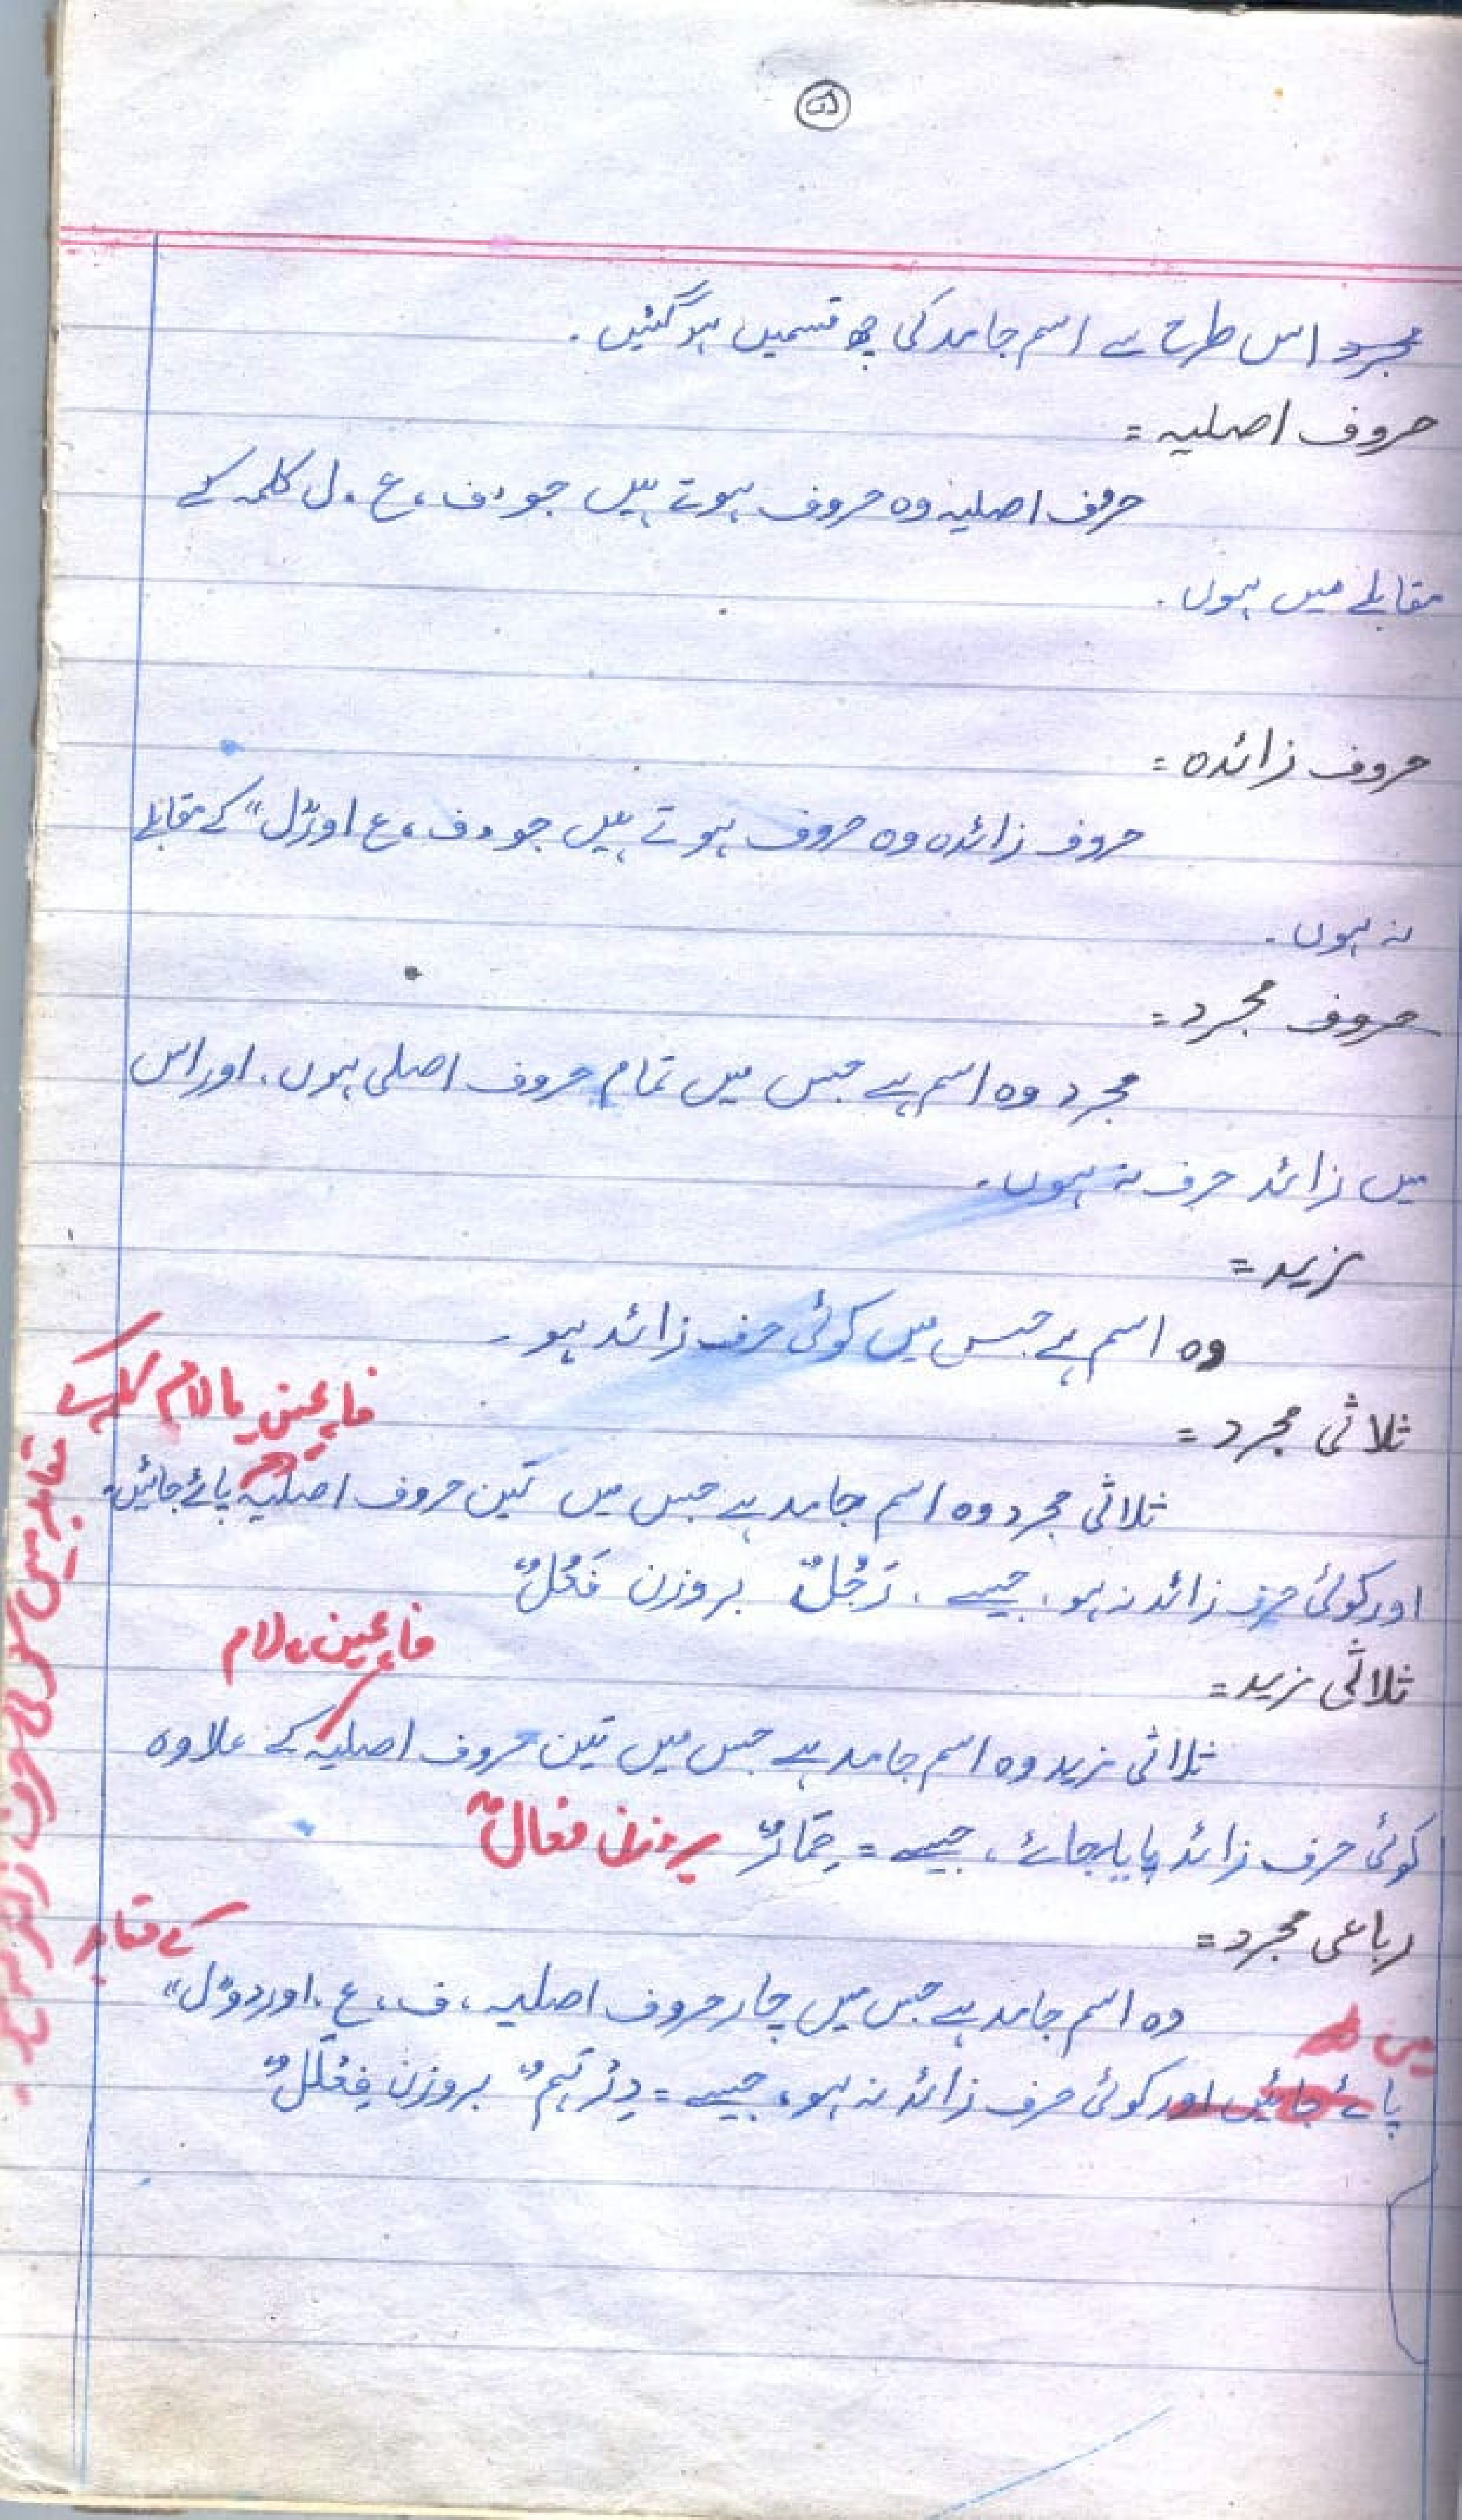 ۵
مجرد اس طرح سے اسم جامد کی چھ قسمیں ہوگئیں۔
حروف اصلیہ =
حروف اصلیہ وہ حروف ہوتے ہیں جو، ف، ع، ل کلمہ کے
مقابلے میں ہوں۔
حروف زائدہ =
حروف زائدہ وہ حروف ہوتے ہیں جو، ف، ع اور "ل" کے مقابلے
نہ ہوں۔
حروف مجرد =
مجرد وہ اسم ہے جس میں تمام حروف اصلی ہوں، اور اس
میں زائد حرف نہ ہوں۔
مزید =
وہ اسم ہے جس میں کوئی حرف زائد ہو۔
ثلاثی مجرد =
فا، عین یا لام کلمہ کے
ثلاثی مجرد وہ اسم جامد ہے جس میں تین حروف اصلیہ پائے جائیں،
اور کوئی حرف زائد نہ ہو، جیسے، رَجُلٌ بروزن فَعُلٌ
فا، عین، لام
ثلاثی مزید =
ثلاثی مزید وہ اسم جامد ہے جس میں تین حروف اصلیہ کے علاوہ
کوئی حرف زائد پایا جائے، جیسے = حِمَارٌ بروزن فعالٌ
رباعی مجرد =
کے مقابلہ
وہ اسم جامد ہے جس میں چار حروف اصلیہ، ف، ع، اور دو "ل"
میں
پائے جائیں اور کوئی حرف زائد نہ ہو، جیسے = دِرْہَمٌ بروزن فِعْلَلٌ
مقابلہ میں